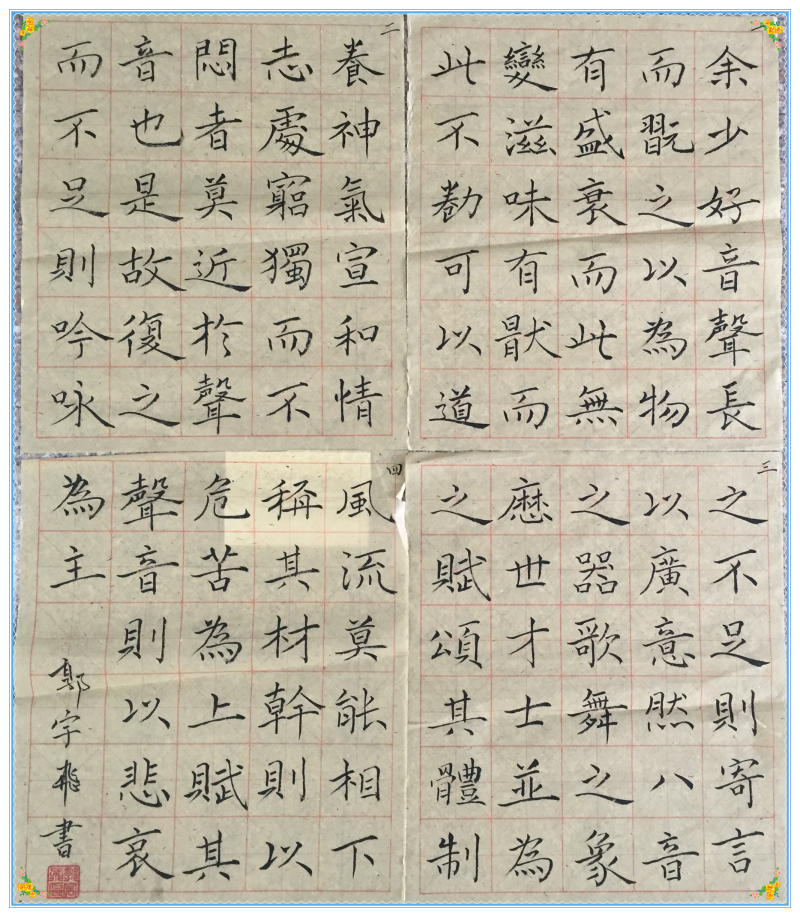 一
余少好音聲長
而翫之以為物
有盛衰而此無
變滋味有猒而
此不勌可以道
二
養神氣宣和情
志處窮獨而不
悶者莫近於聲
音也是故復之
而不足則吟咏
三
之不足則寄言
以廣意然八音
之器歌舞之象
歷世才士並為
之賦頌其體制
四
風流莫能相下
稱其材幹則以
危苦為上賦其
聲音則以悲哀
為主
郭宇飛書